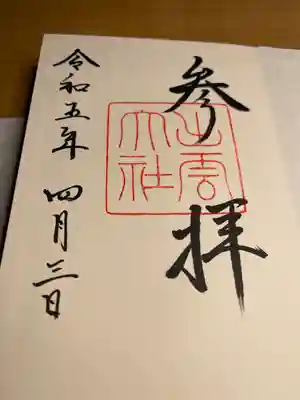 参拝
出雲
大社
令和五年 四月三日